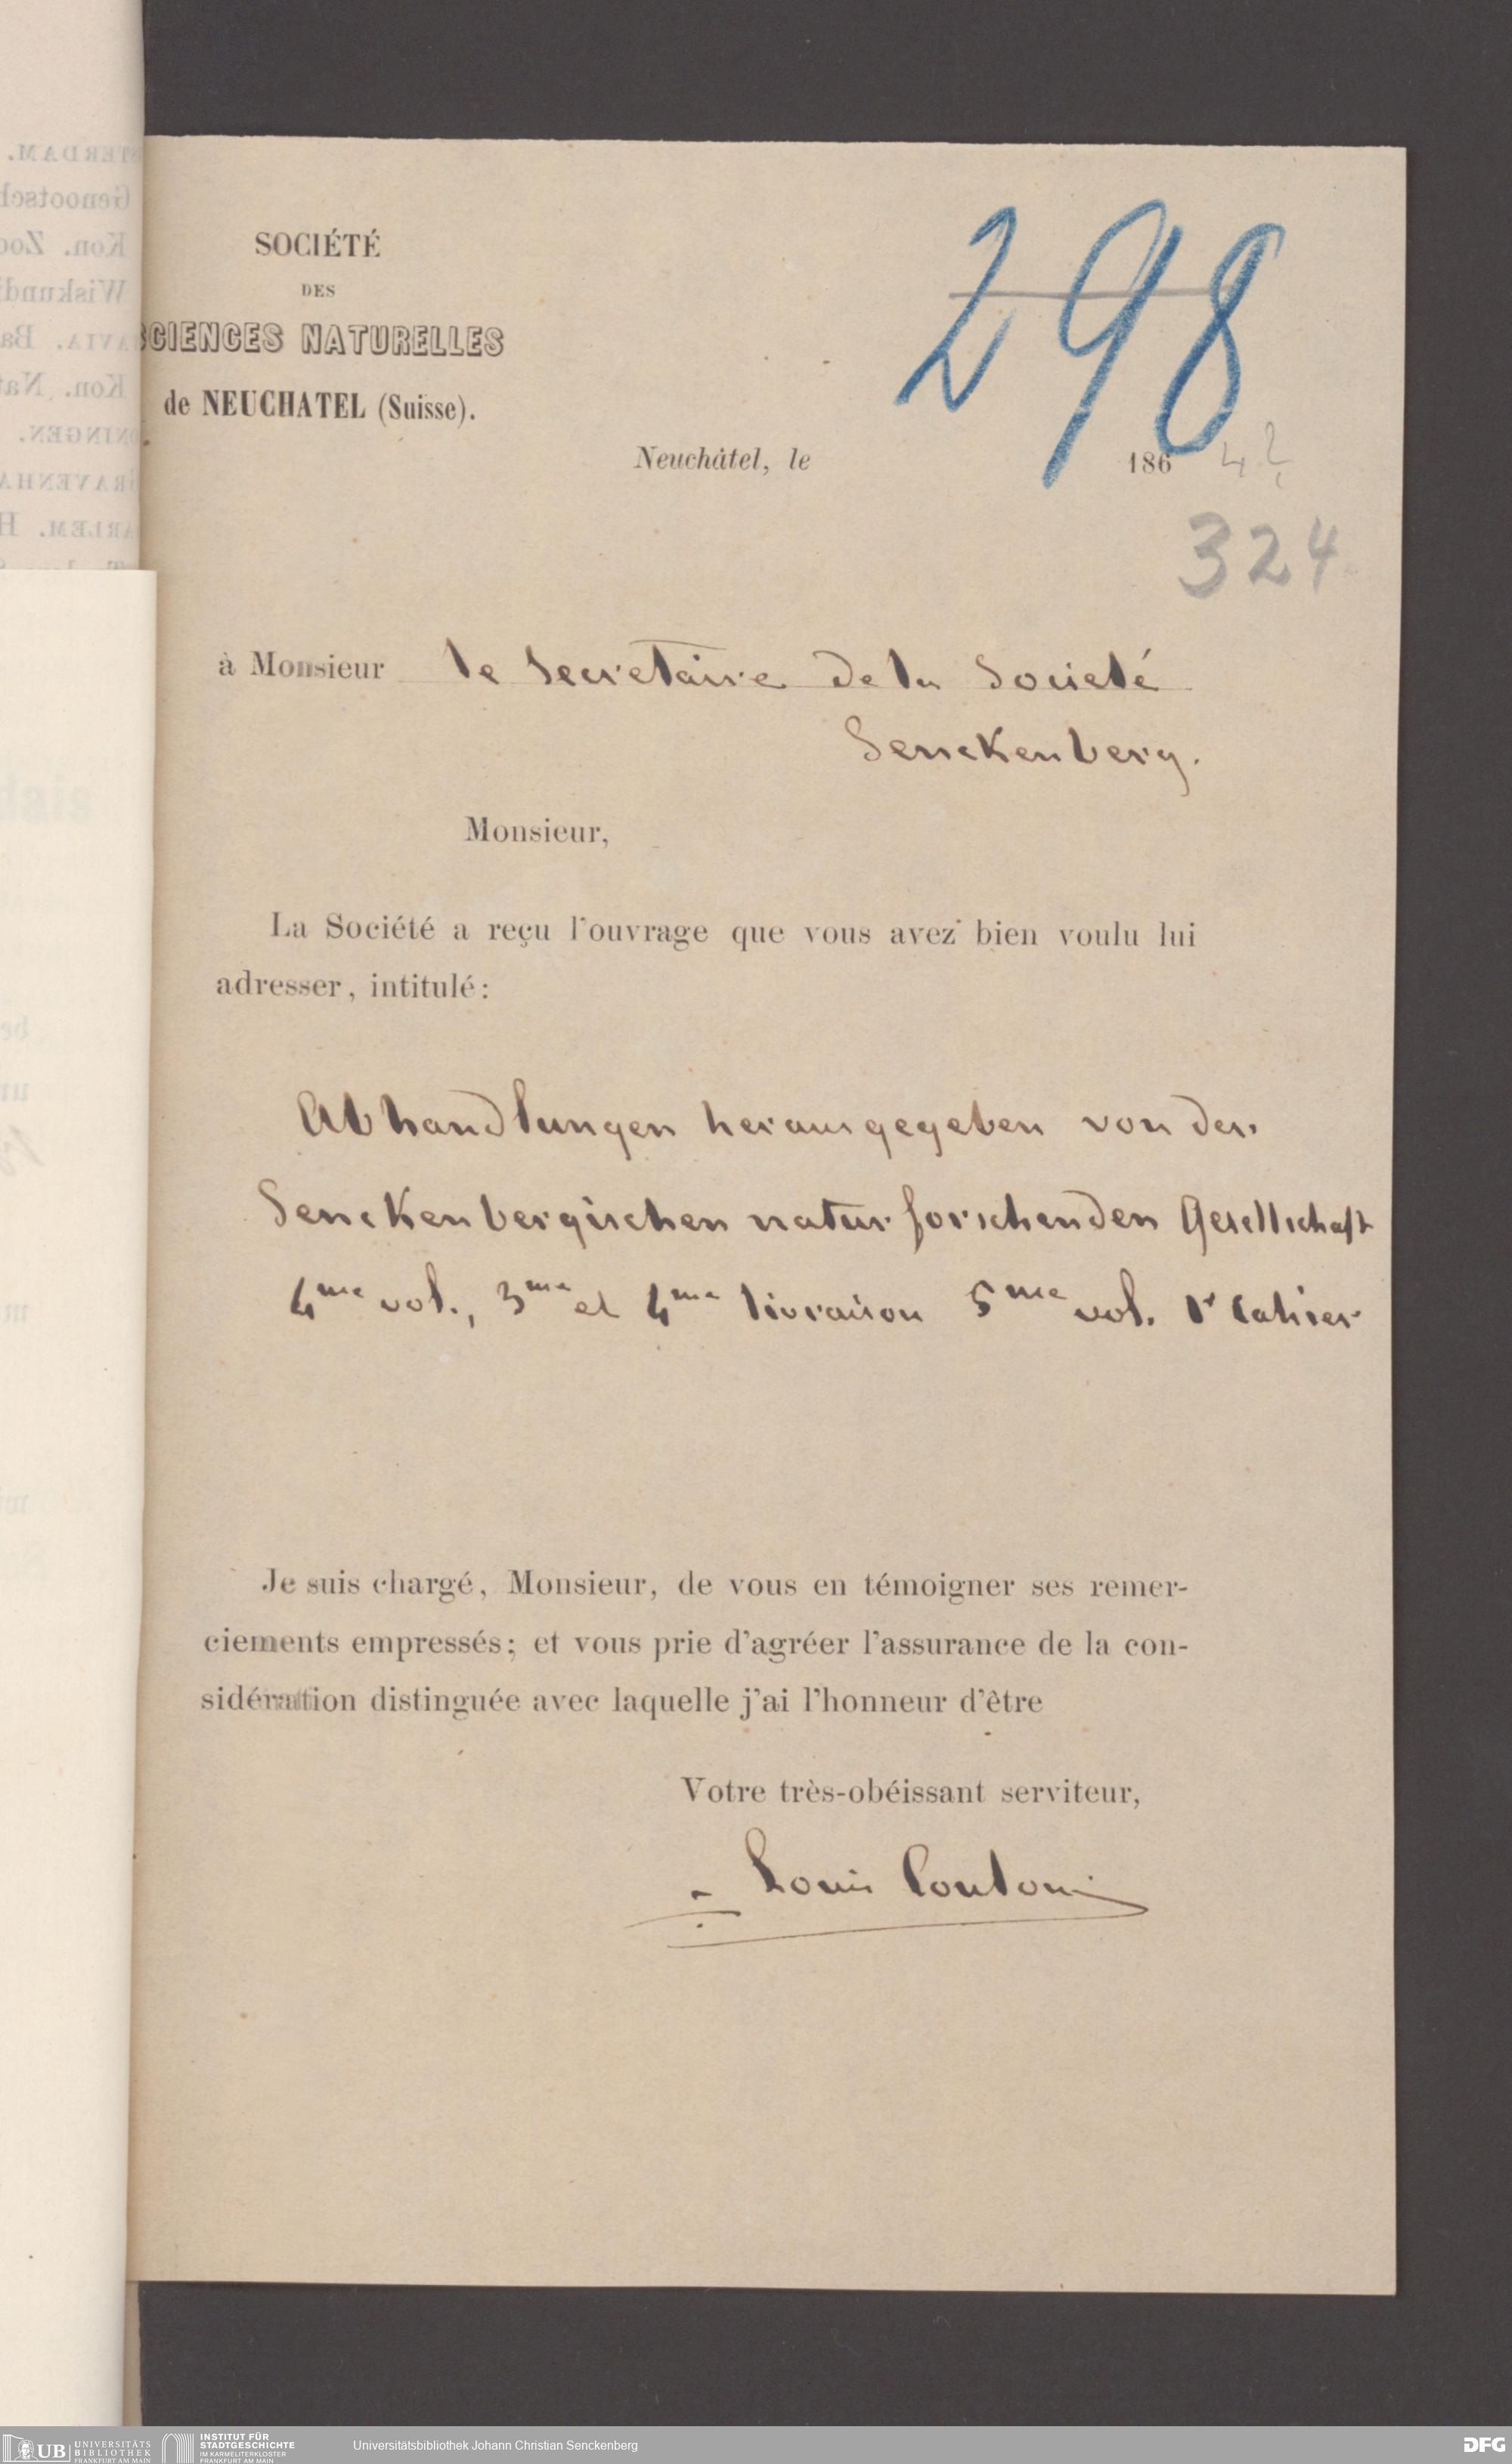 SOCIÉTÉ
DES
SCIENCES NATURELLES
de NEUCHATEL (Suisse).
298
Neuchâtel, le 186 4?
324
à Monsieur le Secretaire de la Societé
Senckenberg.
Monsieur,
La Société a reçu l'ouvrage que vous avez bien voulu lui
adresser, intitulé:
Abhandlungen herausgegeben von der
Senckenbergischen naturforschenden Gesellschaft
4me vol., 3me et 4me livraison 5me vol. 1r Cahier
Je suis chargé, Monsieur, de vous en témoigner ses remer-
ciements empressés; et vous prie d'agréer l'assurance de la con-
sidération distinguée avec laquelle j'ai l'honneur d'être
Votre très-obéissant serviteur,
Louis Coulon
UB UNIVERSITÄTS
BIBLIOTHEK
FRANKFURT AM MAIN
INSTITUT FÜR
STADTGESCHICHTE
IM KARMELITERKLOSTER
FRANKFURT AM MAIN
Universitätsbibliothek Johann Christian Senckenberg
DFG